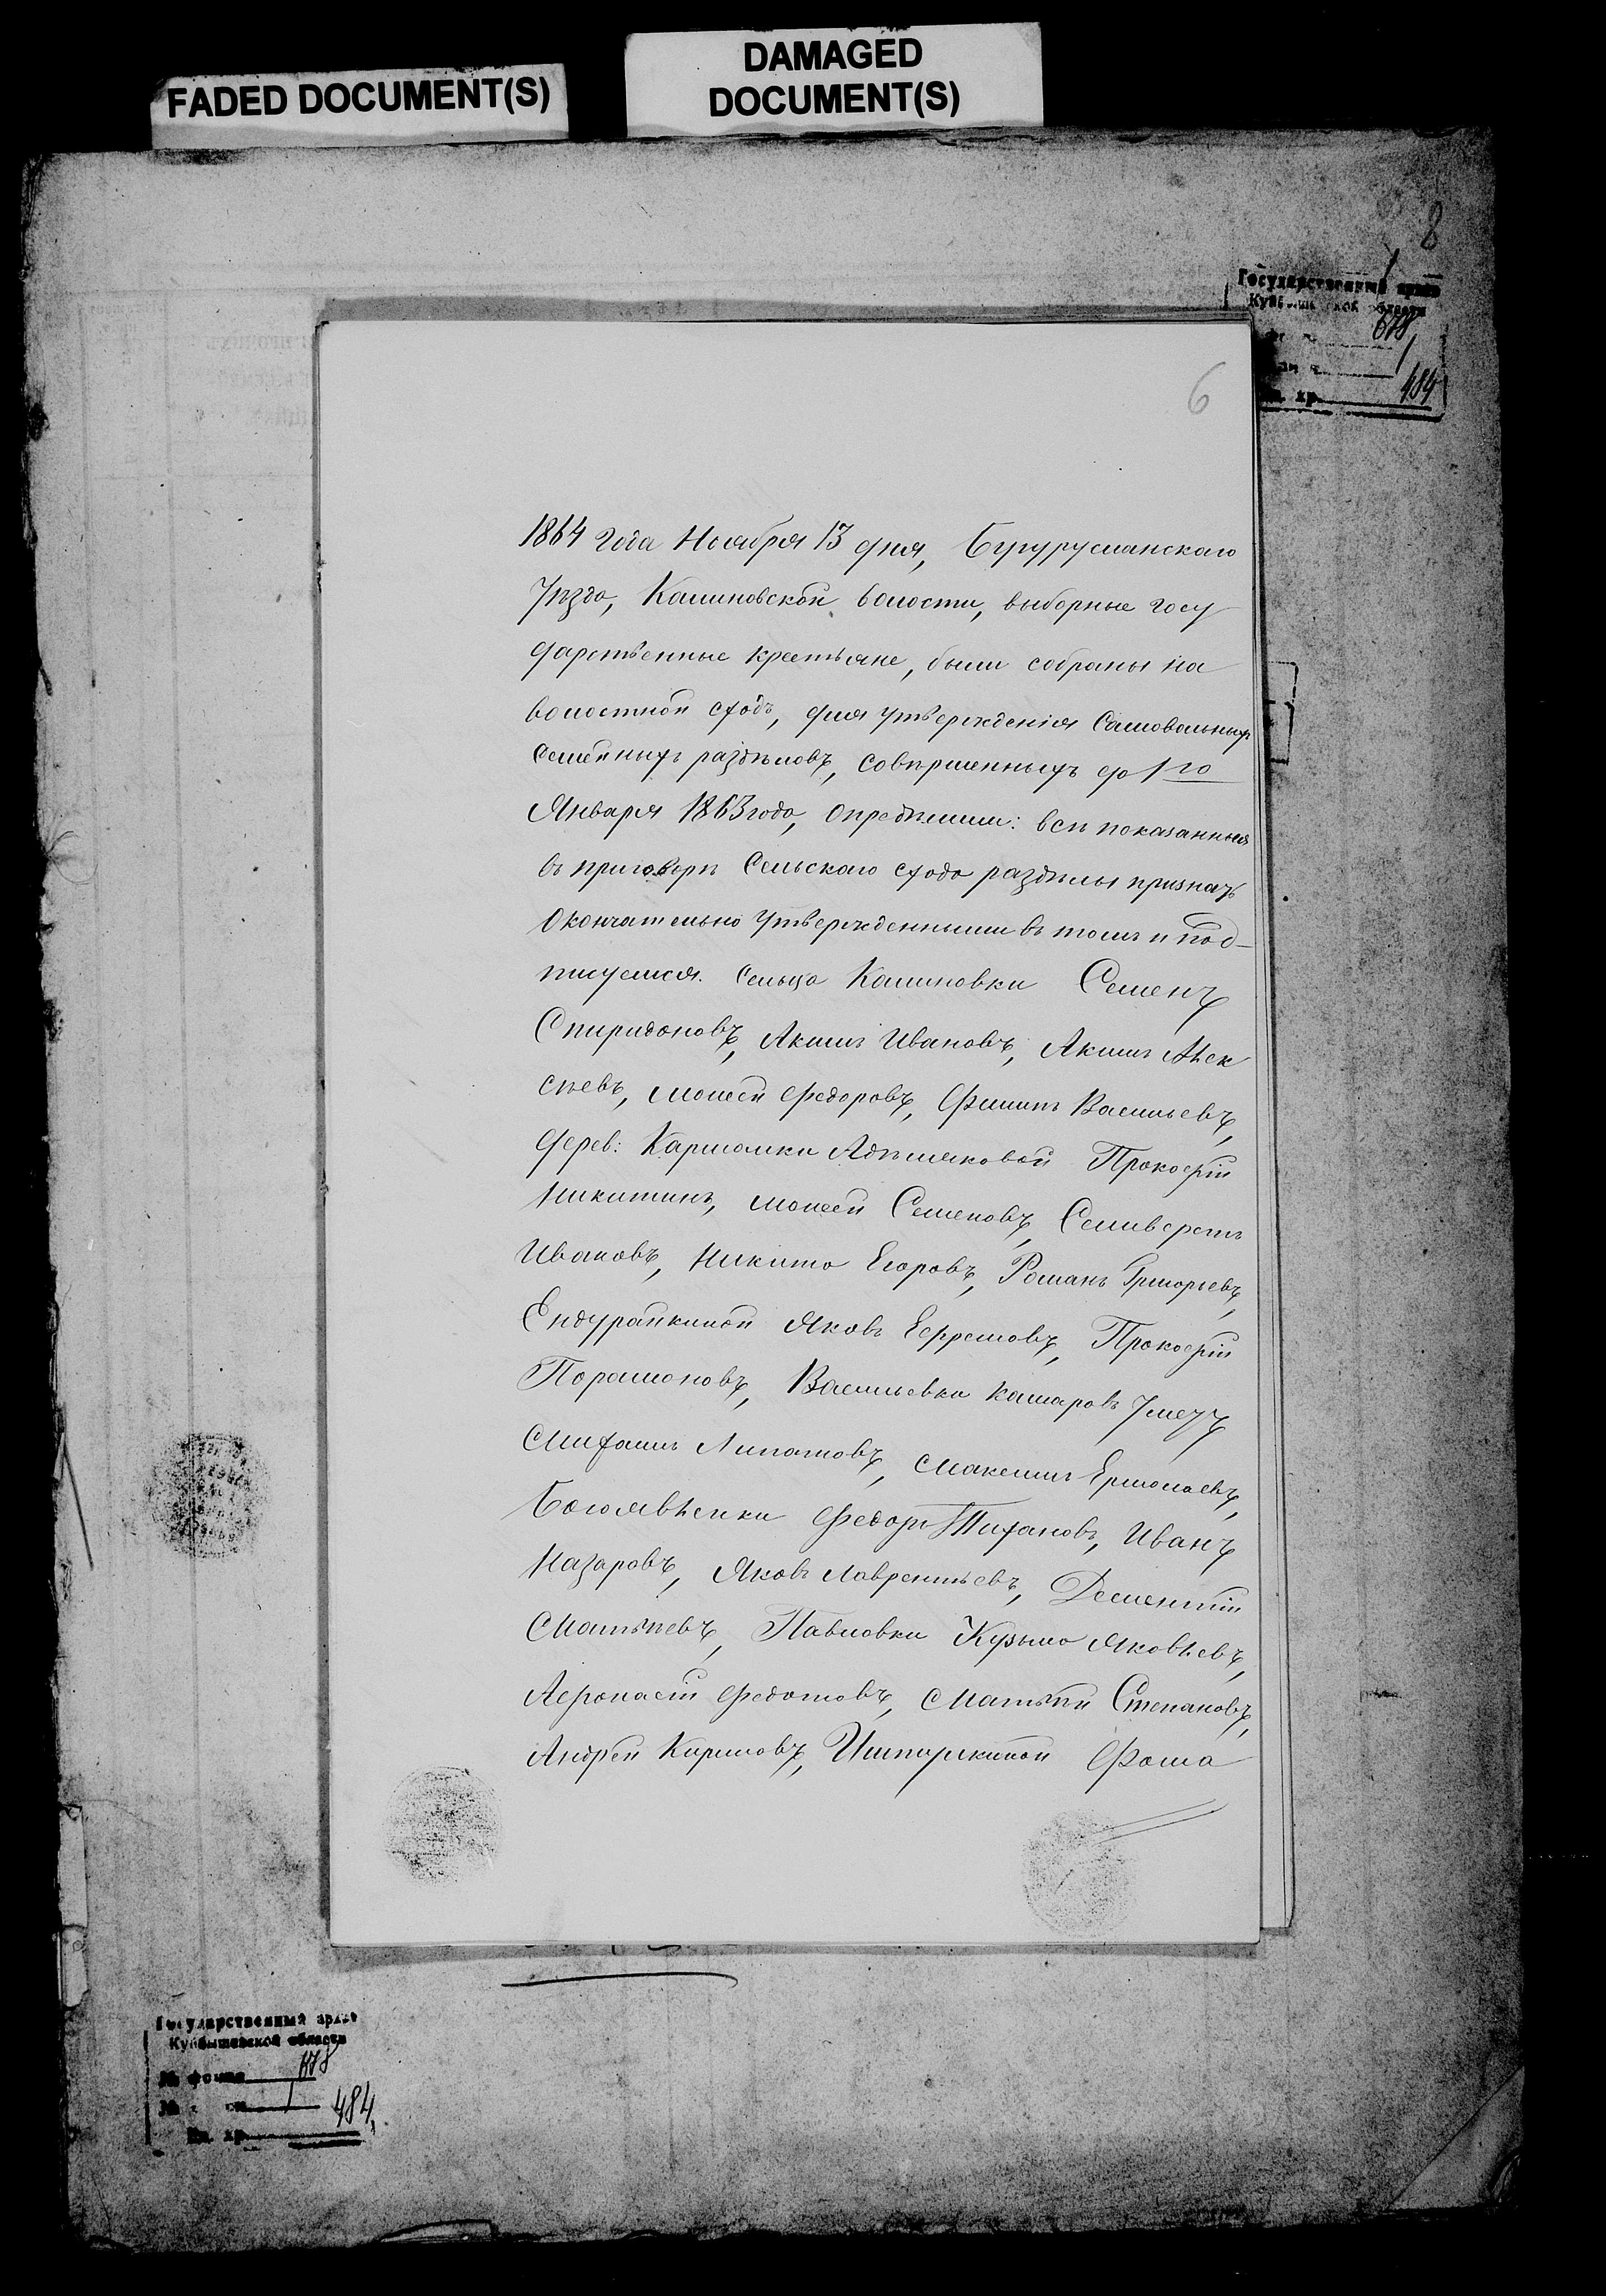 FADED DOCUMENT(S)
DAMAGED
DOCUMENT(S)
8
Государственный архив
Куйбышевской области
678
1
484
6
1864 года Ноября 13 дня, Бугурусланскаго
Уѣзда, Калиновской волости, выборные госу
дарственные крестьяне, были собраны на
волостной сходъ, для утвержденія самовольныхъ
семейныхъ раздѣловъ, совѣршенныхъ до 1го
Января 1863 года, опредѣлили: всѣ показанныя
въ приговорѣ Сельскаго схода раздѣлы признать
окончательно утвержденными въ томъ и под-
писуемся. Сельца Калиновки Семенъ
Спиридоновъ, Акимъ Ивановъ, Акимъ Алек
сѣевъ, Моисей Федоровъ, Филипъ Васильевъ,
дерев: Кармалки Адѣляковой Прокофій
Никитинъ, Моисей Семеновъ, Селиверстъ
Ивановъ, Никита Егоровъ, Романъ Григорьевъ,
Ендурайкиной Яковъ Ефремовъ, Прокофій
Парамоновъ, Васильевки Кашаровъ Уметъ
Митрофанъ Липатовъ, Максимъ Ермолаевъ,
Богоявленки Федоръ Тихановъ, Иванъ
Назаровъ, Яковъ Лаврентьевъ, Дементій
Матвѣевъ, Павловки Кузьма Яковлевъ,
Афонасій Федотовъ, Матвѣй Степановъ,
Андрей Кириловъ, Ишпарскиной Фома
Государственный архив
Куйбышевской области
№ фонда 678
№ 1
Ед. хр. 484